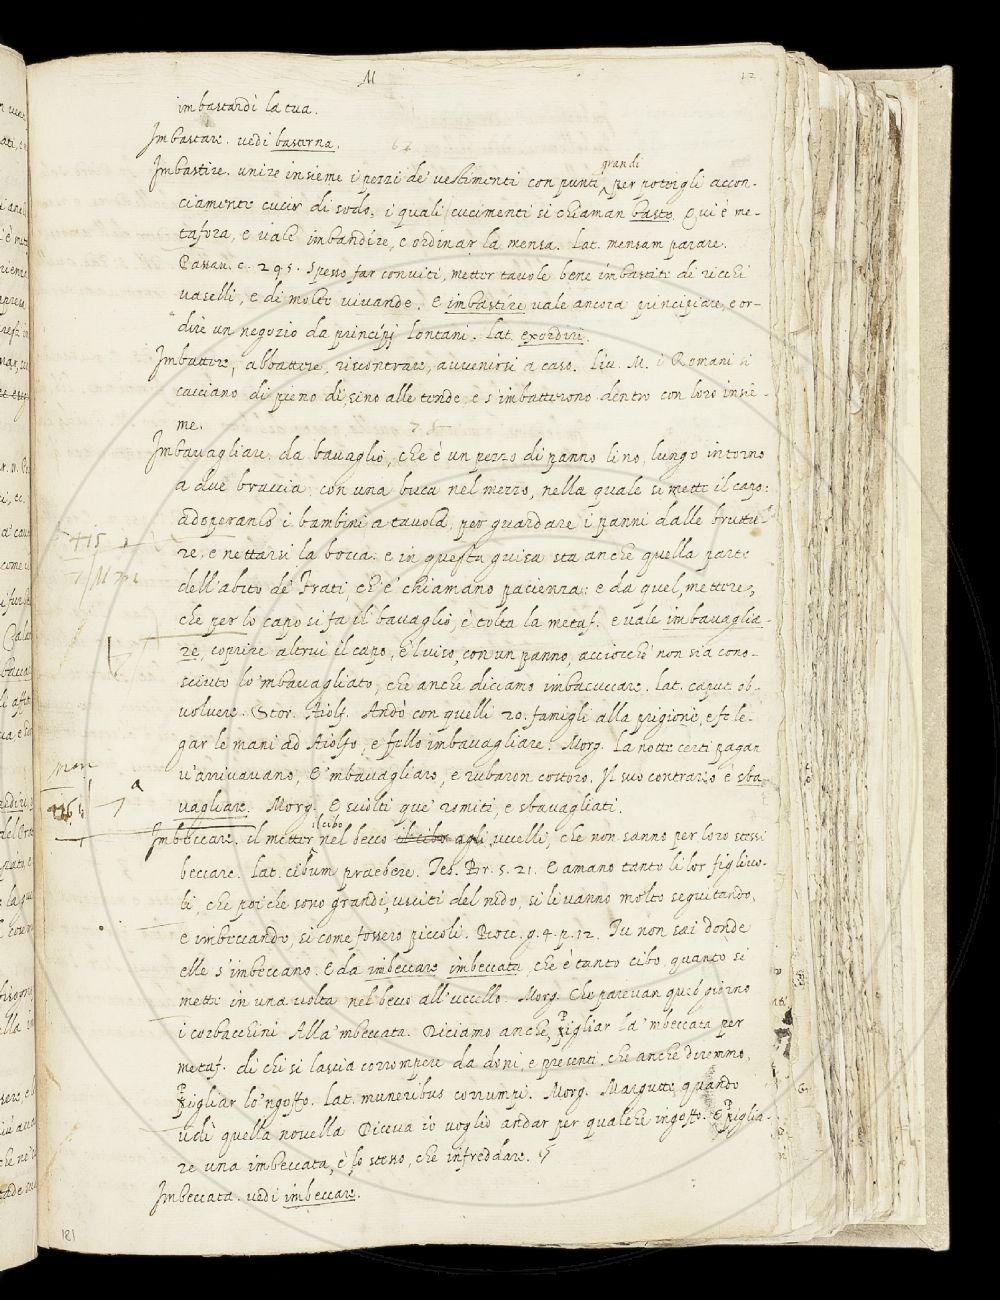 M
12
imbastardì la tua.
Imbastare. vedi basterna.
Imbastire. unire insieme i pezzi de' vestimenti con punti grandi per potergli accon-
ciamente cucir di sodo, i quali cucimenti si chiaman baste. Qui è me-
tafora, e vale imbandire, e ordinar la mensa. Lat. mensam parare.
Passau. c. 295. Spesso far conviti, metter tavole bene imbastite di ricchi
vaselli, e di molte vivande. E imbastire vale ancora principiare, e or-
dire un negozio da princípi lontani. Lat. exordiri.
Imbattere, abbattere, riscontrare, avvenirsi a caso. Liv. M. i Romani si
cacciano di pieno dì, sino alle tende, e s'imbatterono dentro con loro insie-
me.
Imbavagliare. da bavaglio, che è un pezzo di panno lino, lungo intorno
a due braccia, con una buca nel mezzo, nella quale si mette il capo:
adoperanlo i bambini a tavola, per guardare i panni dalle bruttu-
re, e nettarsi la bocca. e in questa guisa sta anche quella parte
dell'abito de' Frati, ch'e' chiamano pacienza: e da quel, mettere,
che per lo capo si fa il bavaglio, è tolta la metaf. e vale imbavaglia-
re, coprire altrui il capo, e 'l viso, con un panno, acciocchè non sia cono-
sciuto lo 'mbavagliato, che anche diciamo imbacuccare. Lat. caput ob-
volvere. Stor. Aiolf. Andò con quelli 20. famigli alla prigione, e fe le-
gar le mani ad Aiolfo, e fello imbavagliare. Morg. La notte certi pagan
v'arrivavano, E 'mbavagliaro, e rubaron costoro. Il suo contrario è sba-
vagliare. Morg. E sciolti que' romiti, e sbavagliati.
Imbeccare. il metter il cibo nel becco il cibo agli uccelli, che non sanno per loro stessi
beccare. Lat. cibum praebere. Tes. Br. 5. 21. E amano tanto li lor figliuo-
li, che poi che sono grandi, usciti del nido, si li vanno molto seguitando,
e imbeccando, sì come fossero piccoli. Bocc. g. 4. p. 12. Tu non sai donde
elle s'imbeccano. E da imbeccare imbeccata, che è tanto cibo, quanto si
mette in una volta nel becco all'uccello. Morg. Che parevan quel giorno
i corbacchini Alla 'mbeccata. Diciamo anche, Pigliar la 'mbeccata per
metaf. di chi si lascia corrompere da doni, e presenti, che anche diremmo,
Pigliar lo 'ngoffo. Lat. muneribus corrumpi. Morg. Margutte, quando
udì quella novella Diceva io voglio andar per qualche ingoffo. E Piglia-
re una imbeccata, è lo stesso, che infreddare.
Imbeccata. vedi imbeccare.
181